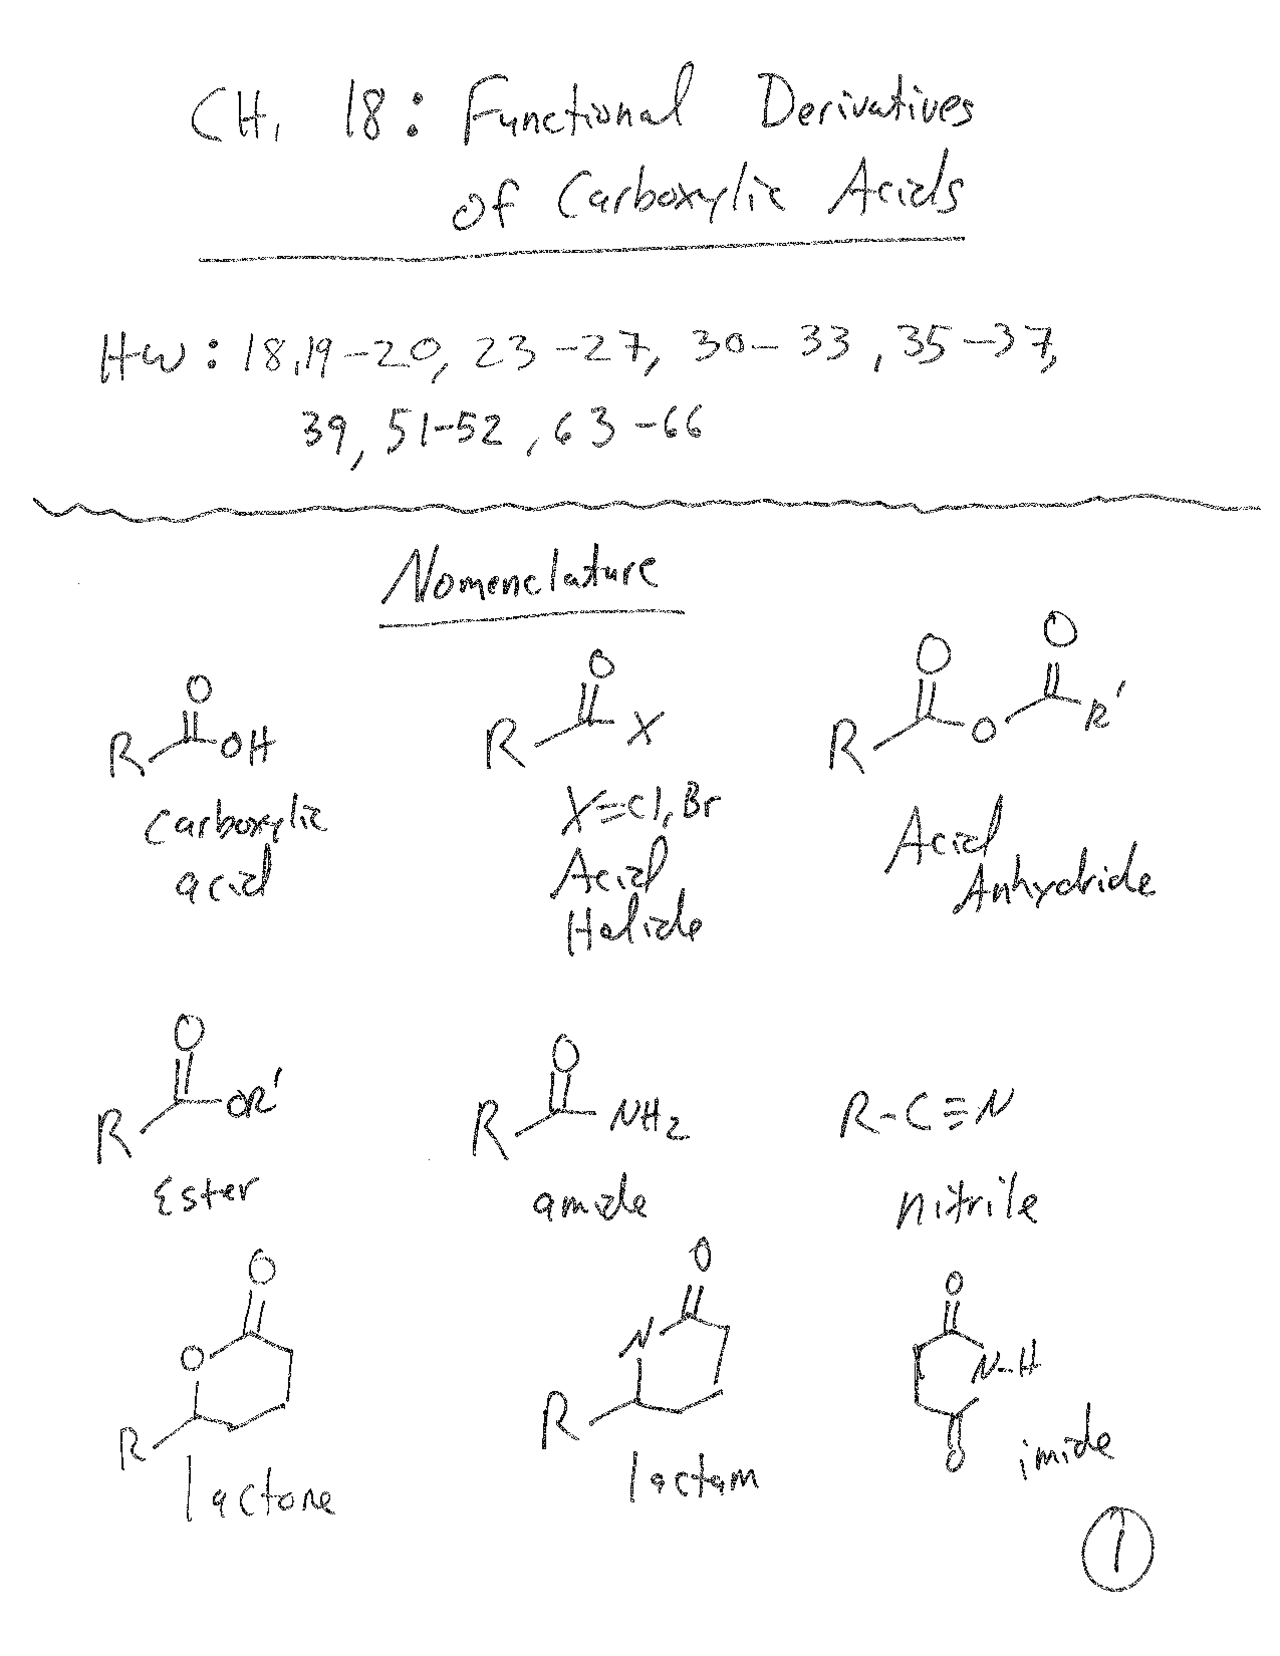 CH. 18: Functional Derivatives
of Carboxylic Acids
HW: 18.19-20, 23-27, 30-33, 35-37,
39, 51-52, 63-66
Nomenclature
O
R OH
Carboxylic
acid
O
R X
X=Cl, Br
Acid
Halide
O O
R O R'
Acid
Anhydride
O
R OR'
Ester
O
R NH2
amide
R-C≡N
nitrile
O
O
R
lactone
O
N
R
lactam
O
N-H
O
imide
1